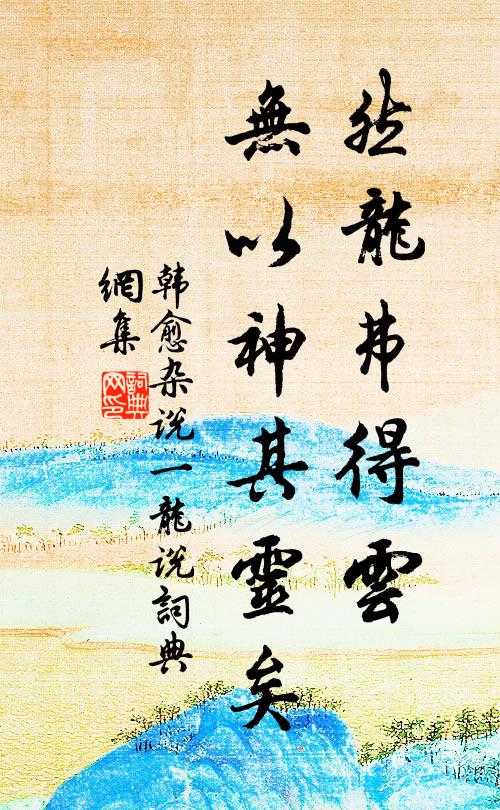 然龍弗得雲
無以神其靈矣
韩愈杂说一龍说詞典
網集
詞典
网印